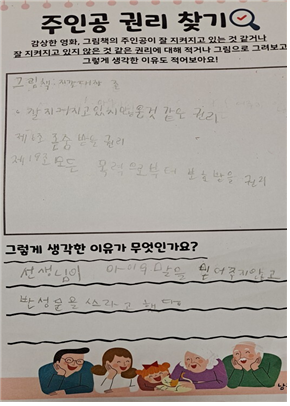 주인공 권리 찾기
감상한 영화, 그림책의 주인공이 잘 지켜지고 있는 것 같거나
잘 지켜지고 있지 않은 것 같은 권리에 대해 적거나 그림으로 그려보고
그렇게 생각한 이유도 적어보아요!
그림책:
잘 지켜지고 있지 않은 것 같은 권리
존중 받을 권리
제19조 모든 폭력으로부터 보호받을 권리
그렇게 생각한 이유가 무엇인가요?
선생님이 아이의 말을 믿어주지 않고
반성문을 쓰라고 했다
남